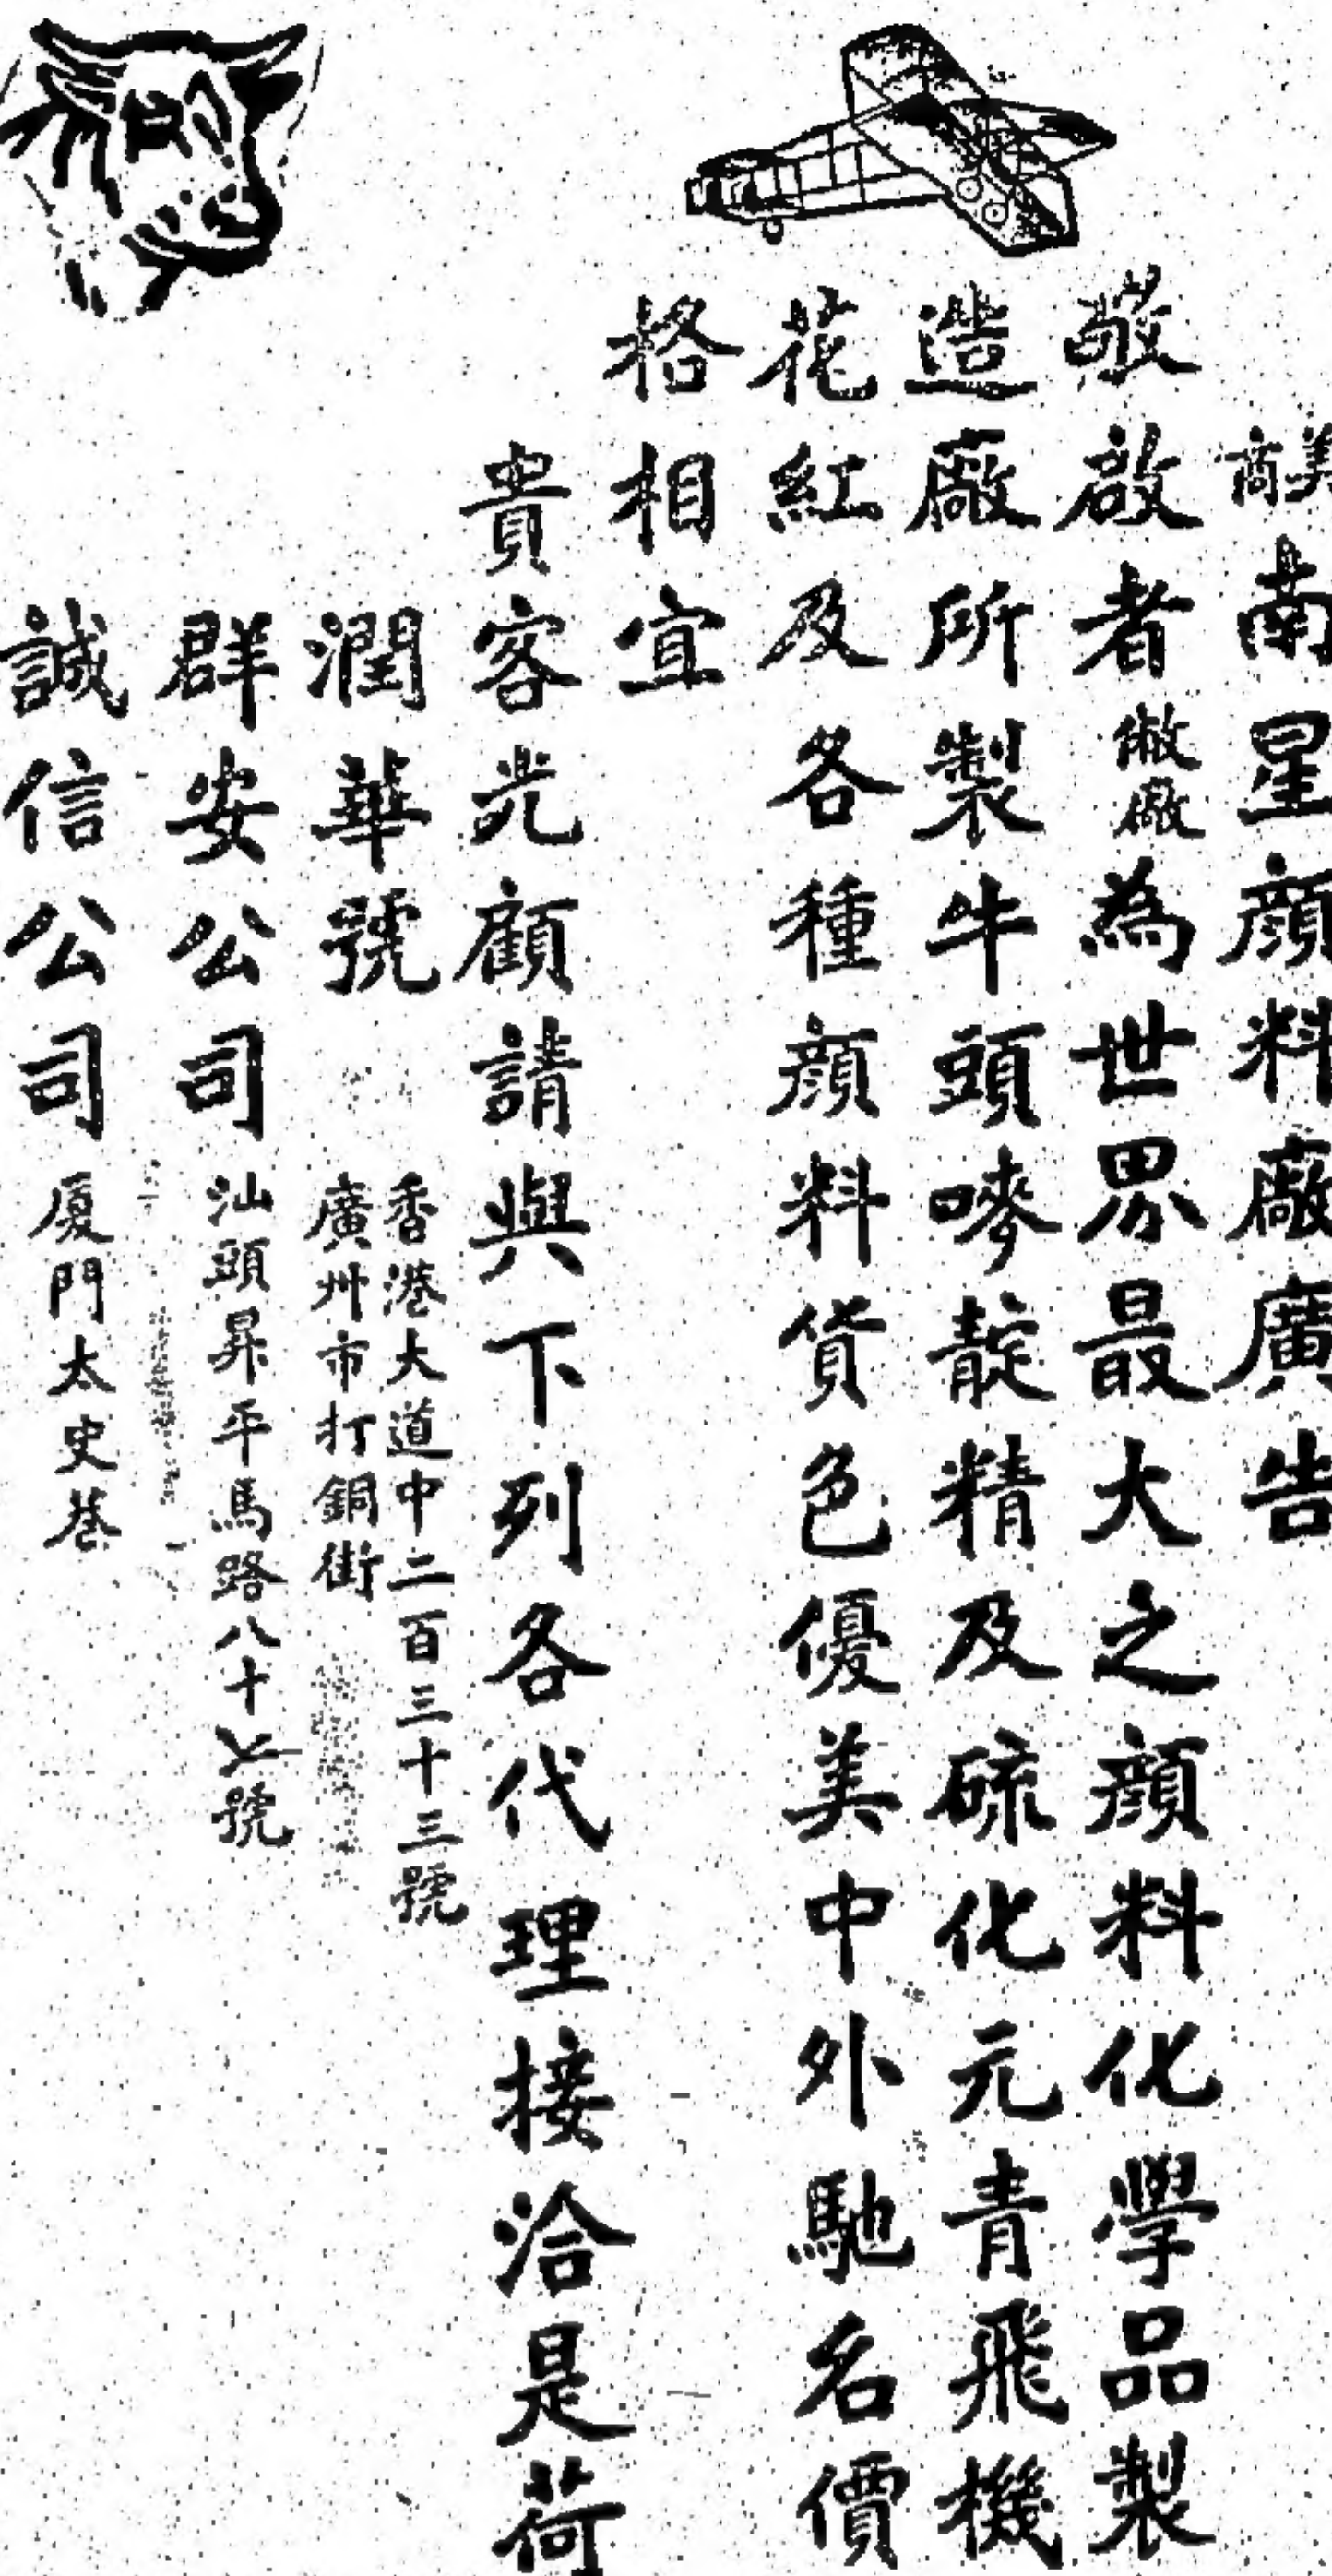 美商南星顏料廠廣告
敬啟者敝廠為世界最大之顏料化學品製
造廠所製牛頭嘜靛精及硫化元青飛機
花紅及各種顏料貨色優美中外馳名價
格相宜
貴客光顧請與下列各代理接洽是荷
潤華號
香港大道中二百三十三號
廣州市打銅街
群安公司 汕頭昇平馬路八十七號
誠信公司 廈門太史巷